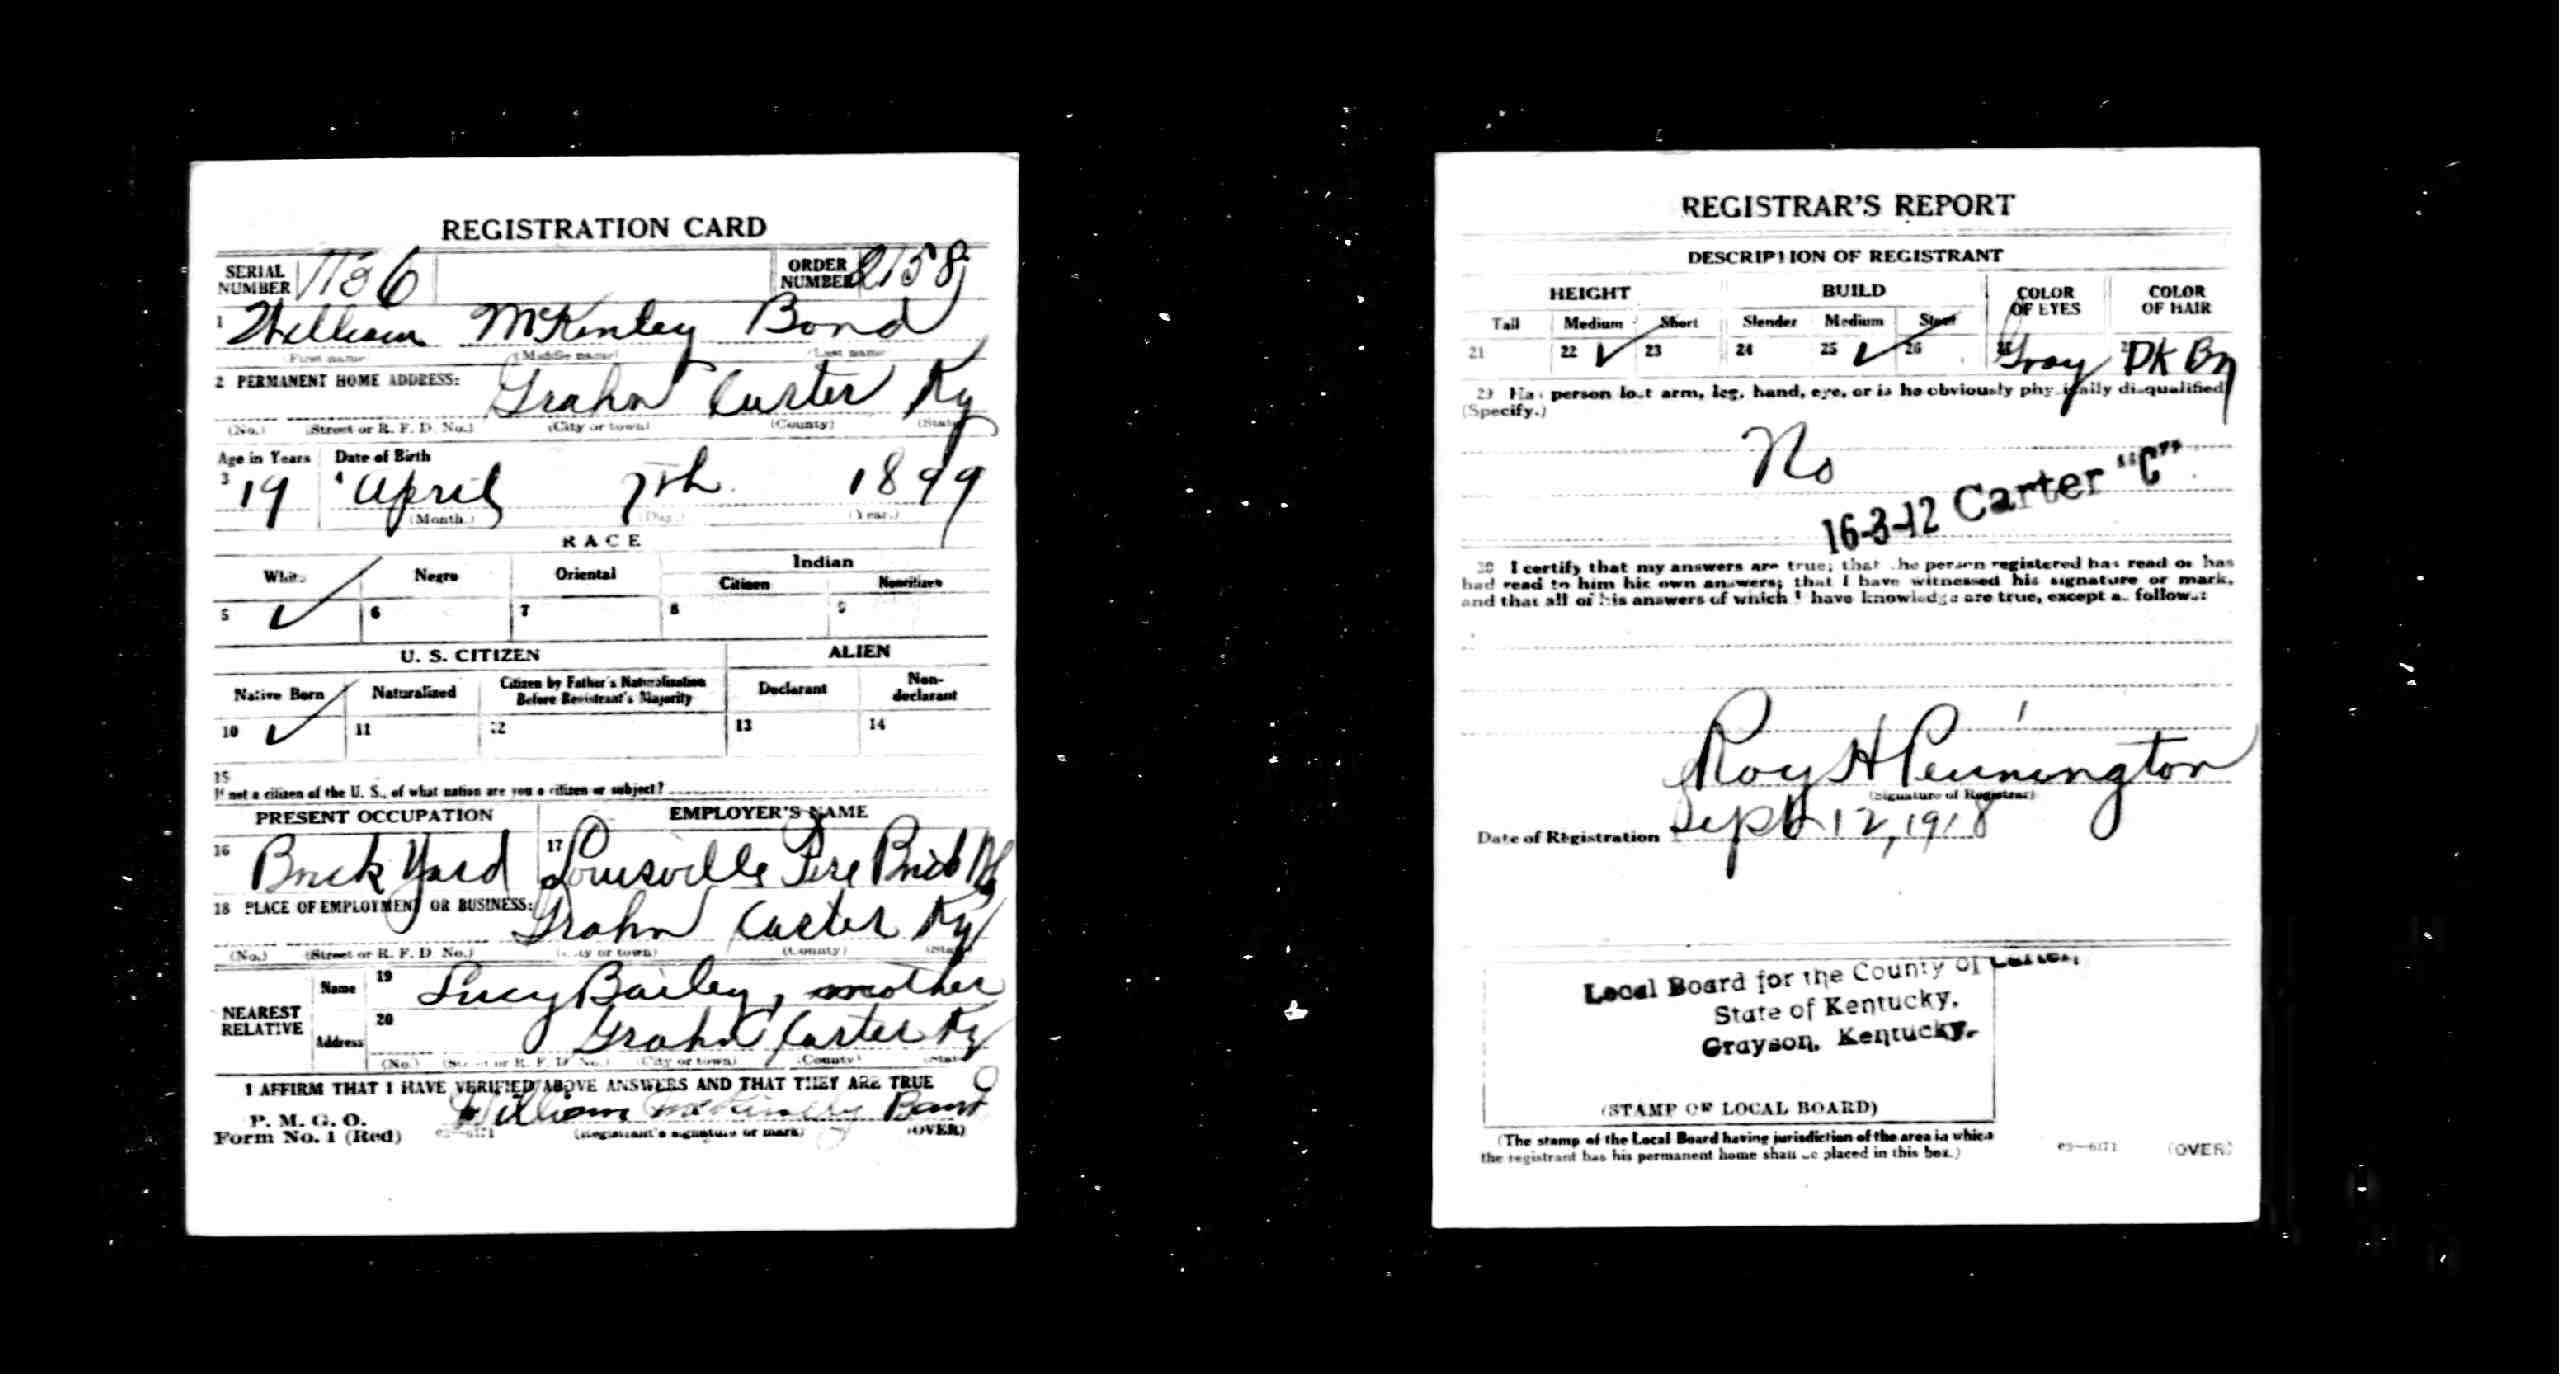 REGISTRATION CARD
SERIAL NUMBER 1136 ORDER NUMBER 2158
1 William McKinley Bond
(First name) (Middle name) (Last name)
2 PERMANENT HOME ADDRESS: Grahn Carter Ky
(No.) (Street or R. F. D. No.) (City or town) (County) (State)
Age in Years Date of Birth
3 19 4 April 7th 1899
(Month.) (Day.) (Year.)
RACE
White Negro Oriental Indian
Citizen Noncitizen
5 ✓ 6 7 8 9
U. S. CITIZEN ALIEN
Native Born Naturalized Citizen by Father's Naturalization Before Registrant's Majority Declarant Non-declarant
10 ✓ 11 12 13 14
15
If not a citizen of the U. S., of what nation are you a citizen or subject?
PRESENT OCCUPATION EMPLOYER'S NAME
16 Brick Yard 17 Louisville Fire Brick
18 PLACE OF EMPLOYMENT OR BUSINESS: Grahn Carter Ky
(No.) (Street or R. F. D. No.) (City or town) (County) (State)
NEAREST RELATIVE Name 19 Lucy Bailey, mother
Address 20 Grahn Carter Ky
(No.) (Street or R. F. D. No.) (City or town) (County) (State)
I AFFIRM THAT I HAVE VERIFIED ABOVE ANSWERS AND THAT THEY ARE TRUE
P. M. G. O.
Form No. 1 (Red) William McKinley Bond
(Registrant's signature or mark) (OVER)
REGISTRAR'S REPORT
DESCRIPTION OF REGISTRANT
HEIGHT BUILD COLOR OF EYES COLOR OF HAIR
Tall Medium Short Slender Medium Stout
21 22 ✓ 23 24 25 ✓ 26 Gray DK Bn
29 Has person lost arm, leg, hand, eye, or is he obviously physically disqualified?
(Specify.)
No
16-3-12 Carter "C"
30 I certify that my answers are true; that the person registered has read or has
had read to him his own answers; that I have witnessed his signature or mark,
and that all of his answers of which I have knowledge are true, except as follows:
Roy H Pennington
(Signature of Registrar)
Date of Registration Sept 12, 1918
Local Board for the County of Carter,
State of Kentucky,
Grayson, Kentucky.
(STAMP OF LOCAL BOARD)
(The stamp of the Local Board having jurisdiction of the area in which
the registrant has his permanent home shall be placed in this box.)
03—6171 (OVER)